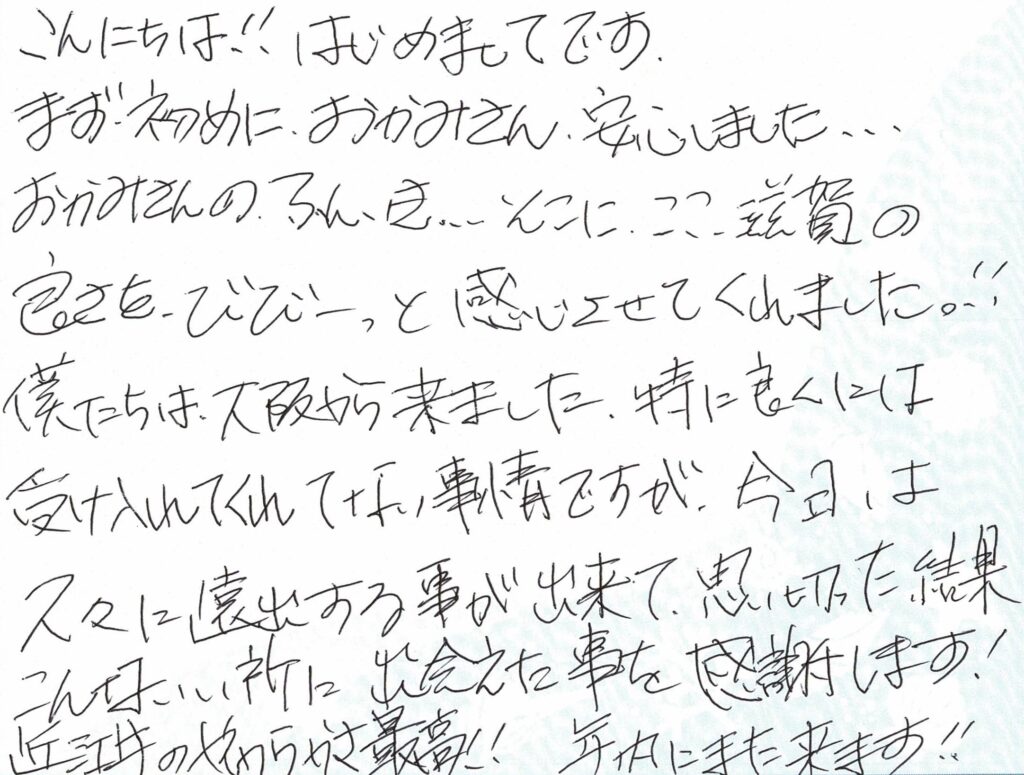 こんにちは!! はじめましてです.
まず初めに、おかみさん、安心しました...
おかみさんの、ふんいき... そこに、ここ、滋賀の
良さを、びびーっと感じさせてくれました。!!
僕たちは、大阪から来ました、特に良くには
受け入れてくれてない事情ですが、今日は
久々に遠出する事が出来て、思い切った結果
こんないい所に出会えた事を感謝します!
近江牛のやわらかさ最高!! 年内にまた来ます!!